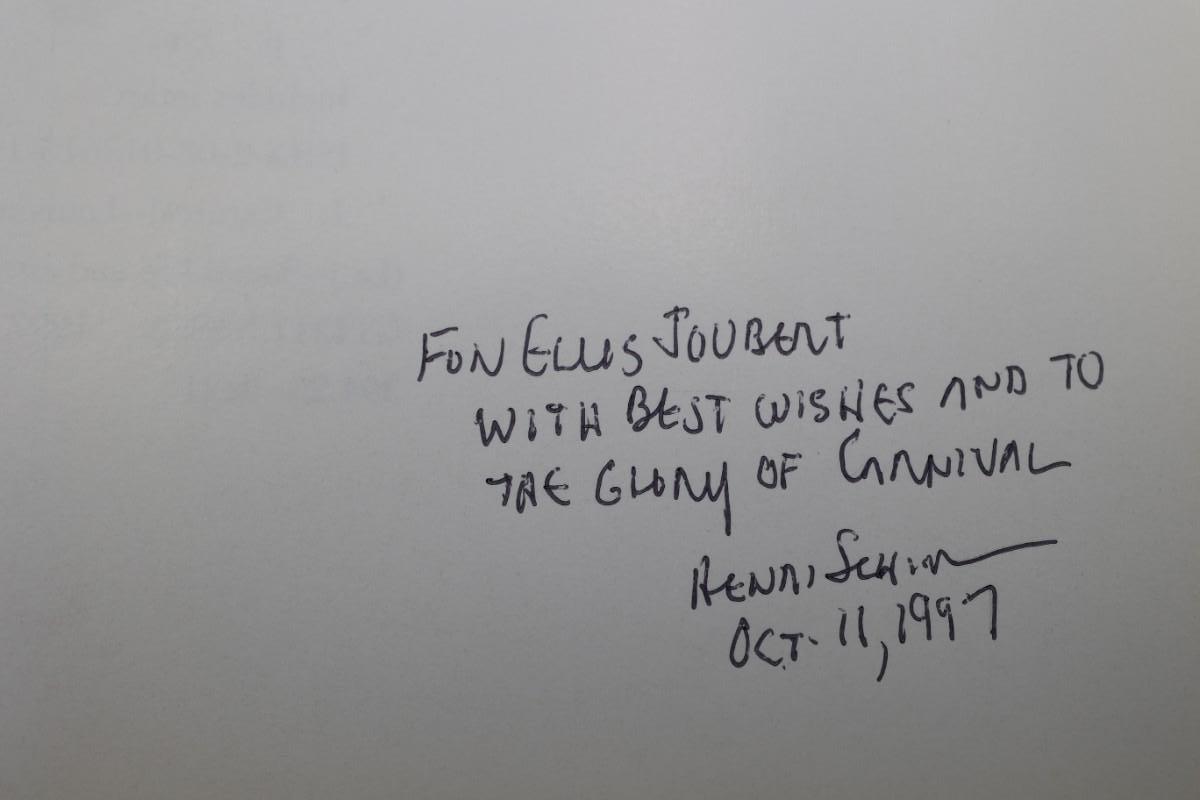 FOR ELLIS JOUBERT
WITH BEST WISHES AND TO
THE GLORY OF CARNIVAL
HENRI SCHINDLER
OCT. 11, 1997